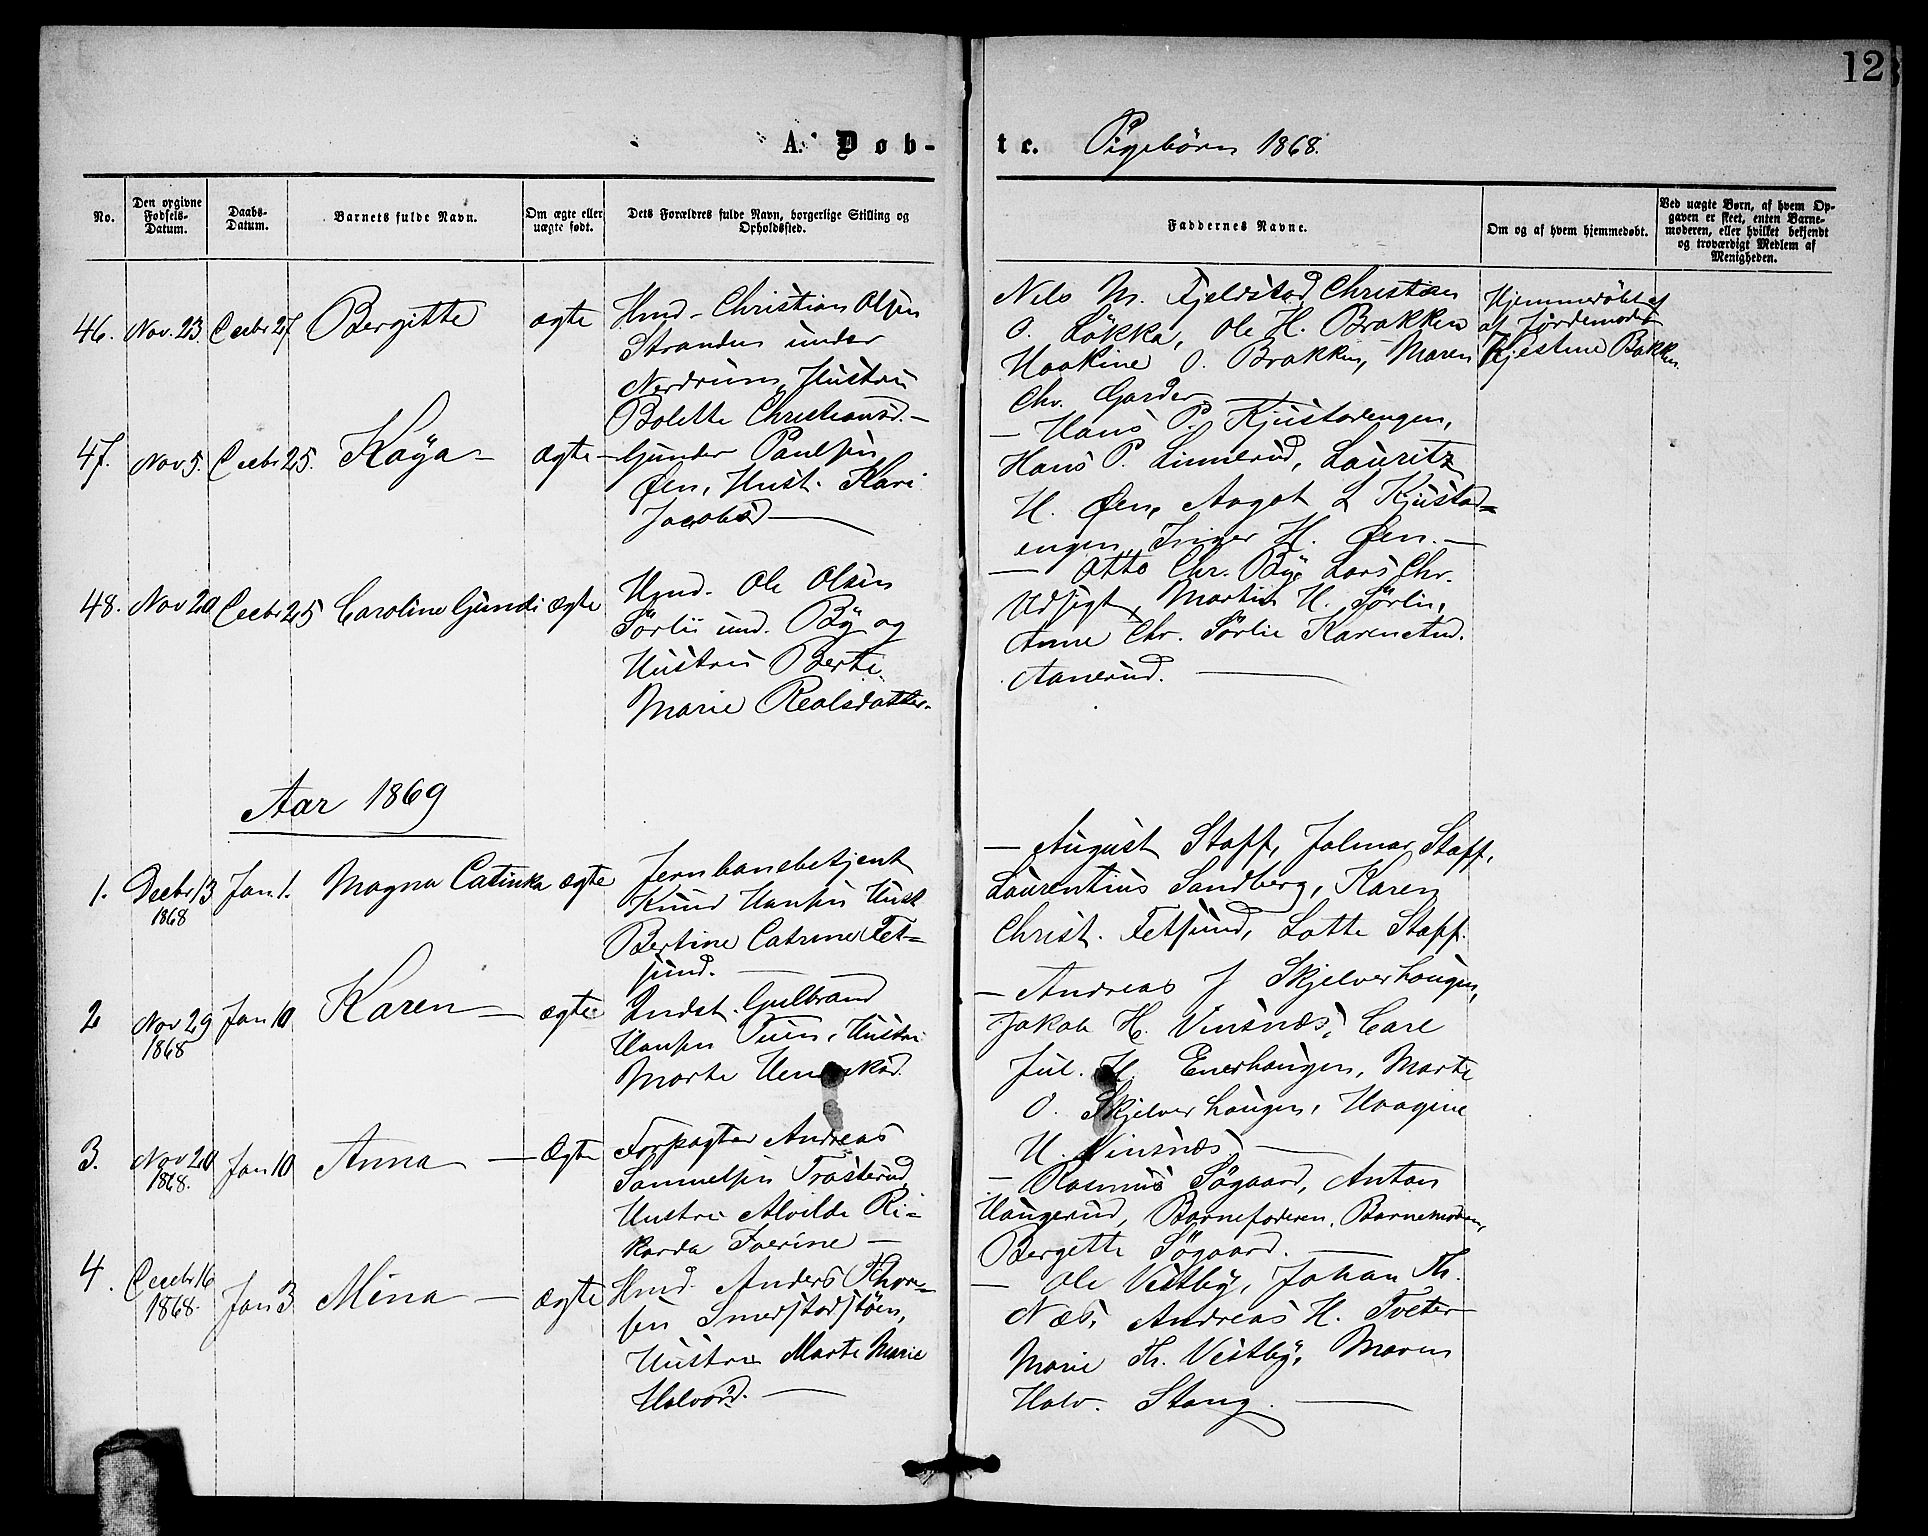 12
A. Døb-
te. Pigebørn 1868.
No.
Den opgivne Fødsels-Datum.
Daabs-Datum.
Barnets fulde Navn.
Om ægte eller uægte født.
Dets Forældres fulde Navn, borgerlige Stilling og Opholdssted.
Faddernes Navne.
Om og af hvem hjemmedøbt.
Ved uægte Børn, af hvem Opgaven er skeet, enten Barnemoderen, eller hvilket bekjendt og troværdigt Medlem af Menigheden.
46. Nov. 23 Decbr 27. Bergitte ægte
Hmd. Christian Olsen
Stranden under
Nerdrum, Hustru
Bolette Christiansd. –
Nils M. Fjeldstad, Christian
O. Løkka, Ole H. Brakken
Haakine O. Brakken, Maren
Chr. Garder –
Hjemmedøbt
af Jordemoder
Kjestine Bakken
47. Nov 5. Decbr 25. Kaya – ægte –
Gunder Paulsen
Øen, Hust. Kari
Jacobsd –
– Hans P. Kjustadengen,
Hans P. Linnerud, Lauritz
H. Øen, Aaget L Kjustad=
engen, Inger H. Øen. –
48. Nov 20 Decbr 25 Caroline Gundi ægte
Hmd. Ole Olsen
Sørlie und. By og
Hustru Berte
Marie Realsdatter.
– Otto Chr. By, Lars Chr.
Udsigt, Martin H. Sørlie,
Anne Chr. Sørlie Karen And.
Aanerud. –
Aar 1869
1. Decbr 13 1868 Jan 1. Magna Catinka ægte
Jernbanebetjent
Knud Hansen Hust
Bertine Catrine Fet=
sund. –
– August Staff, Jalmar Staff,
Laurentius Sandberg, Karen
Christ. Fetsund, Lotte Staff.
2 Nov 29 1868 Jan 10 Karen – ægte
Indst. Gulbrand
Hansen Tuen, Hustru
Marte
– Andreas J Skjelverhougen,
Jakob H. Vinsnæs, Carl
Jul. H. Enerhaugen, Marte
O. Skjelverhougen, Haagine
H. Vinsnæs –
3. Nov 20 1868. Jan 10 Anna – Ægte
Forpagter Andreas
Samuelsen Trosterud,
Hustru Alvilde Ri=
karda Tverine –
– Rasmus Søgaard, Anton
Haugerud, Barnefaderen, Barnemoderen,
Bergette Søgaard. –
4. Decbr 16 1868. Jan 3 Mina – ægte
Hmd. Anders Thor=
sen Smedstadstøen,
Hustru Marte Marie
Halvorsd. –
– Ole Vestby, Johan Th.
Næs, Andreas H. Tveter
Marie Th. Vestby, Maren
Halv. Stang. –